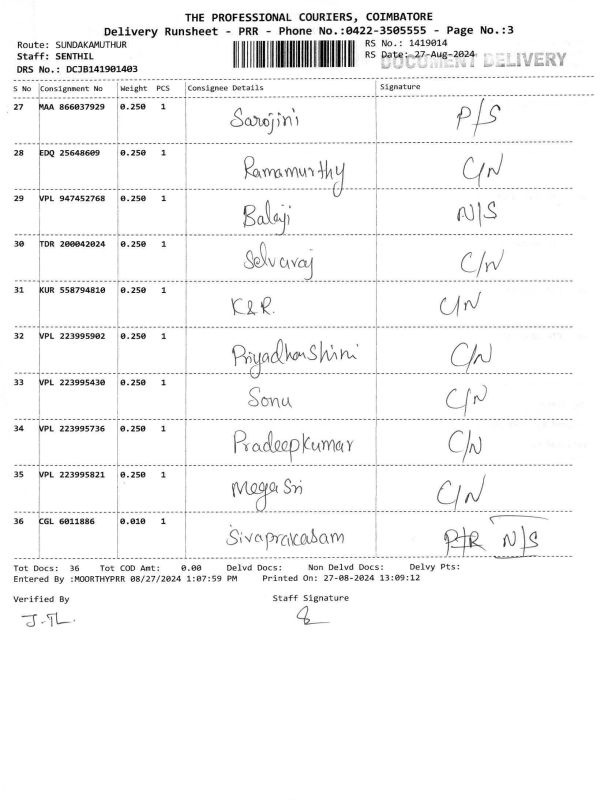 THE PROFESSIONAL COURIERS, COIMBATORE
Delivery Runsheet - PRR - Phone No.:0422-3505555 - Page No.:3
Route: SUNDAKAMUTHUR RS No.: 1419014
Staff: SENTHIL RS Date: 27-Aug-2024 DOCUMENT DELIVERY
DRS No.: DCJB141901403
S No Consignment No Weight PCS Consignee Details Signature
27 MAA 866037929 0.250 1 Sarojini P/S
28 EDQ 25648609 0.250 1 Ramamurthy C/N
29 VPL 947452768 0.250 1 Balaji N/S
30 TDR 200042024 0.250 1 Selvaraj C/N
31 KUR 558794810 0.250 1 K&R. C/N
32 VPL 223995902 0.250 1 Priyadharshini C/N
33 VPL 223995430 0.250 1 Sonu C/N
34 VPL 223995736 0.250 1 Pradeepkumar C/N
35 VPL 223995821 0.250 1 Mega Sri C/N
36 CGL 6011886 0.010 1 Sivaprakasam N/S
Tot Docs: 36 Tot COD Amt: 0.00 Delvd Docs: Non Delvd Docs: Delvy Pts:
Entered By :MOORTHYPRR 08/27/2024 1:07:59 PM Printed On: 27-08-2024 13:09:12
Verified By Staff Signature